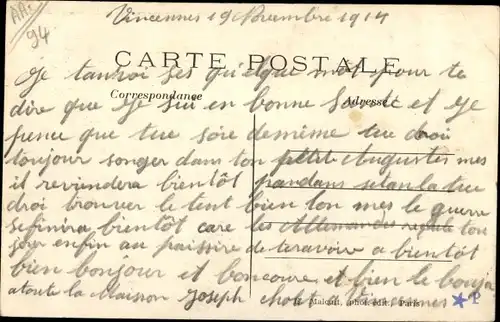 AA:
94
Vincennes 19 Novembre 1914
CARTE POSTALE
Je tanvoi ses quelque mot pour te
Correspondance Adresse
dire que Je sui en bonne Santé et Je
pence que tue soire de meme tue droi
toujour songer dans ton petit Augustes mes
il revindera bientôt pandans selan la tue
droi trouver le tent bien lon mes le guerre
sefinira bientôt care les Allemandes ton
jour enfin au plaissire de teravoir a bientôt
bien bonjour et boncoure et bien le bonjour
atoute la Maison Joseph Vincennes
Malcuit, phot. édit., Paris
P